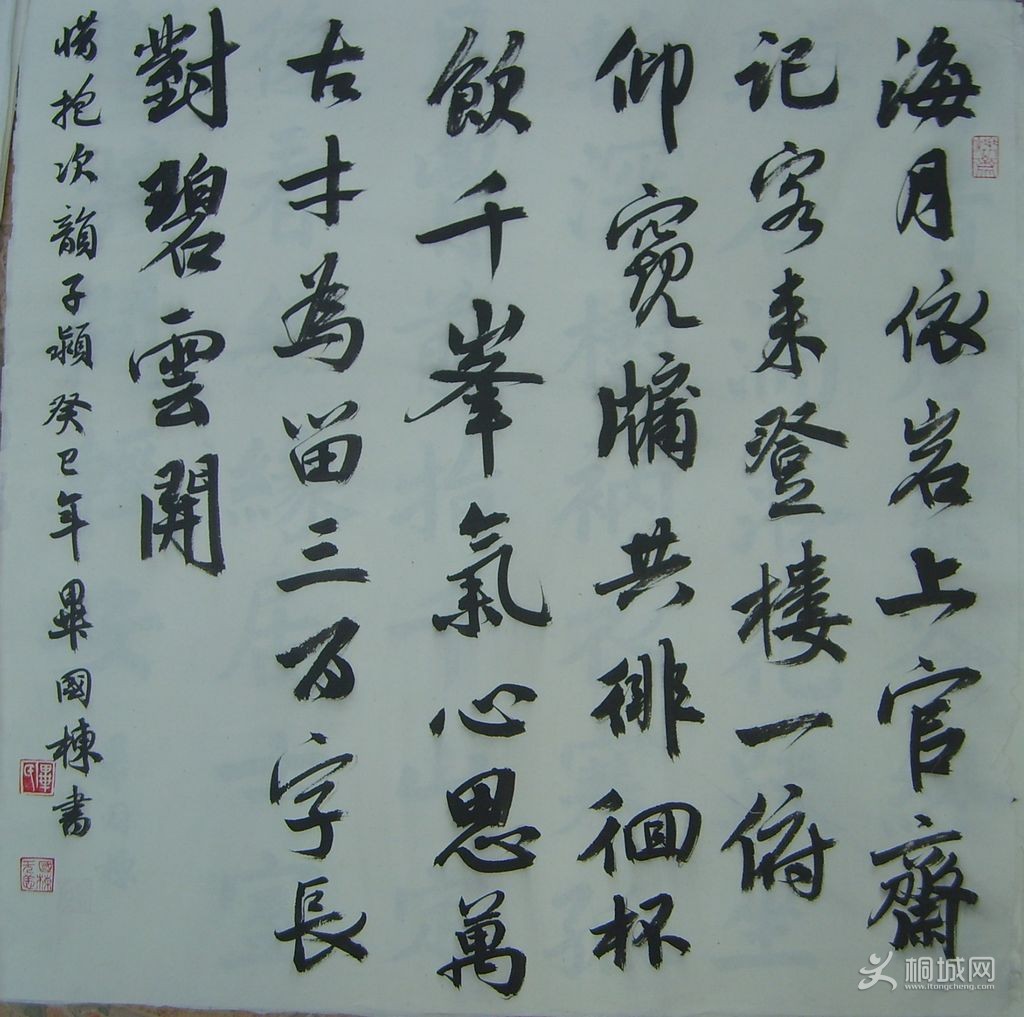 海月依岩上官齋
记客来登楼一俯
仰窺牗共徘徊杯
飲千峯氣心思萬
古才為留三百字長
對碧雲開
惜抱次韻子潁癸巳年畢國棟书
桐城网
www.itongcheng.com